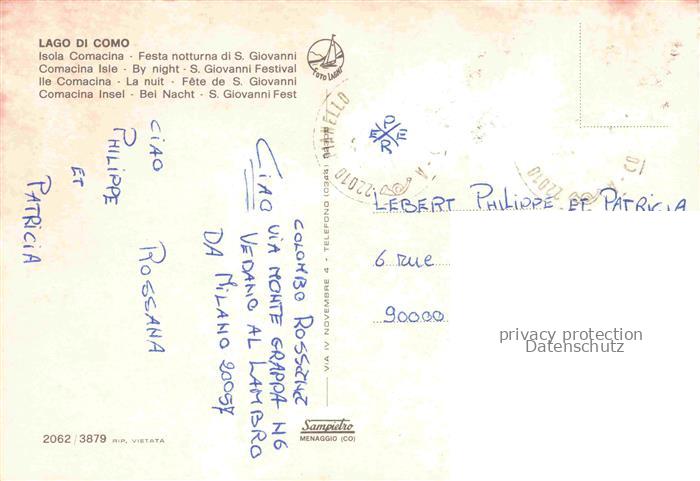 LAGO DI COMO
Isola Comacina · Festa notturna di S. Giovanni
Comacina Isle · By night · S. Giovanni Festival
Ile Comacina · La nuit · Fête de S. Giovanni
Comacina Insel · Bei Nacht · S. Giovanni Fest
CIAO
PHILIPPE
ET
PATRICIA
ROSSANA
CIAO
COLOMBO ROSSANA
VIA MONTE GRAPPA N6
VEDANO AL LAMBRO
DA MILANO 20057
VIA IV NOVEMBRE 4 - TELEFONO (0344)
22010
22010
LEBERT PHILIPPE ET PATRICIA
6 rue
90000
privacy protection
Datenschutz
Sampietro
MENAGGIO (CO)
2062/3879 RIP. VIETATA